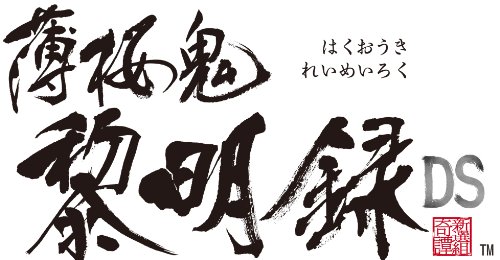 薄桜鬼
はくおうき
れいめいろく
黎明録 DS
新選組
奇譚
TM